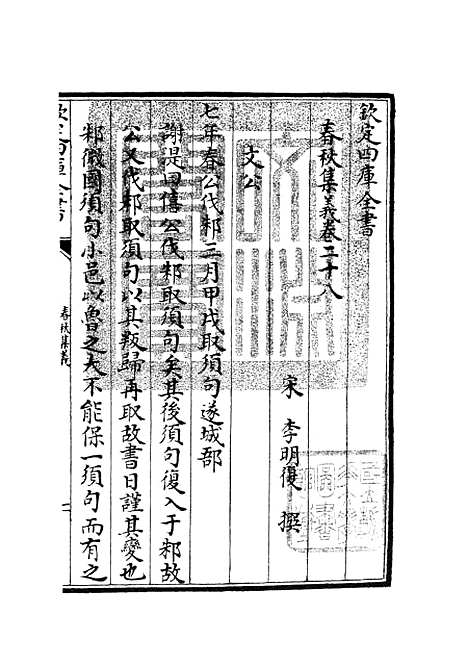 欽定四庫全書
春秋集義卷二十八
宋 李明復 撰
文公
七年春公伐邾三月甲戌取須句遂城郚
謝湜曰僖公伐邾取須句矣其後須句復入于邾故
公又伐邾取須句以其叛歸再取故書日謹其變也
邾微國須句小邑以魯之大不能保一須句而有之
欽定四庫全書
春秋集義